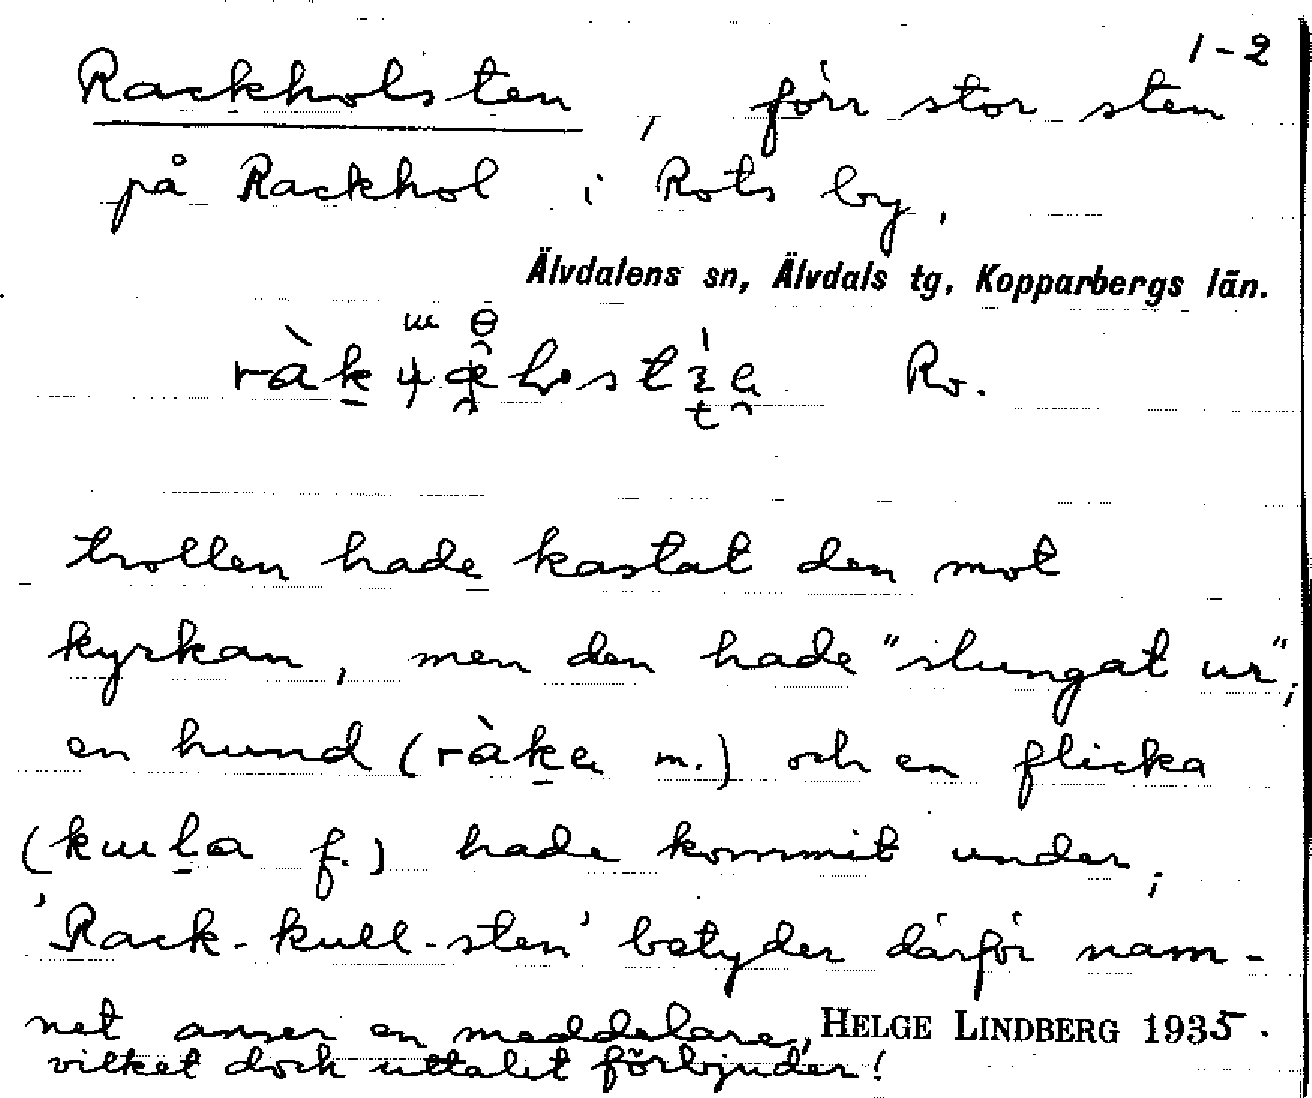 1-2
Rackholsten, förr stor sten
på Rackhol i Rots by.
Älvdalens sn, Älvdals tg, Kopparbergs län.
Ro.
trollen hade kastat den mot
kyrkan, men den hade "slungat ur";
en hund (ràka m.) och en flicka
(kulla f.) hade kommit under;
'Rack-kull-sten' betyder därför nam-
net anser en meddelare, HELGE LINDBERG 1935.
vilket dock uttalet förbjuder!